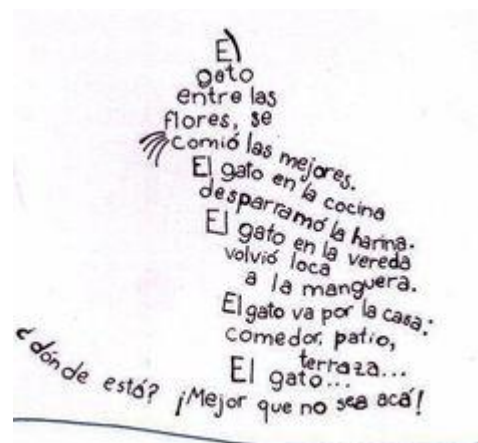 El
gato
entre las
flores, se
comió las mejores.
El gato en la cocina
desparramó la harina.
El gato en la vereda
volvió loca
a la manguera.
El gato va por la casa:
comedor, patio,
terraza...
El gato...
¿dónde está? ¡Mejor que no sea acá!